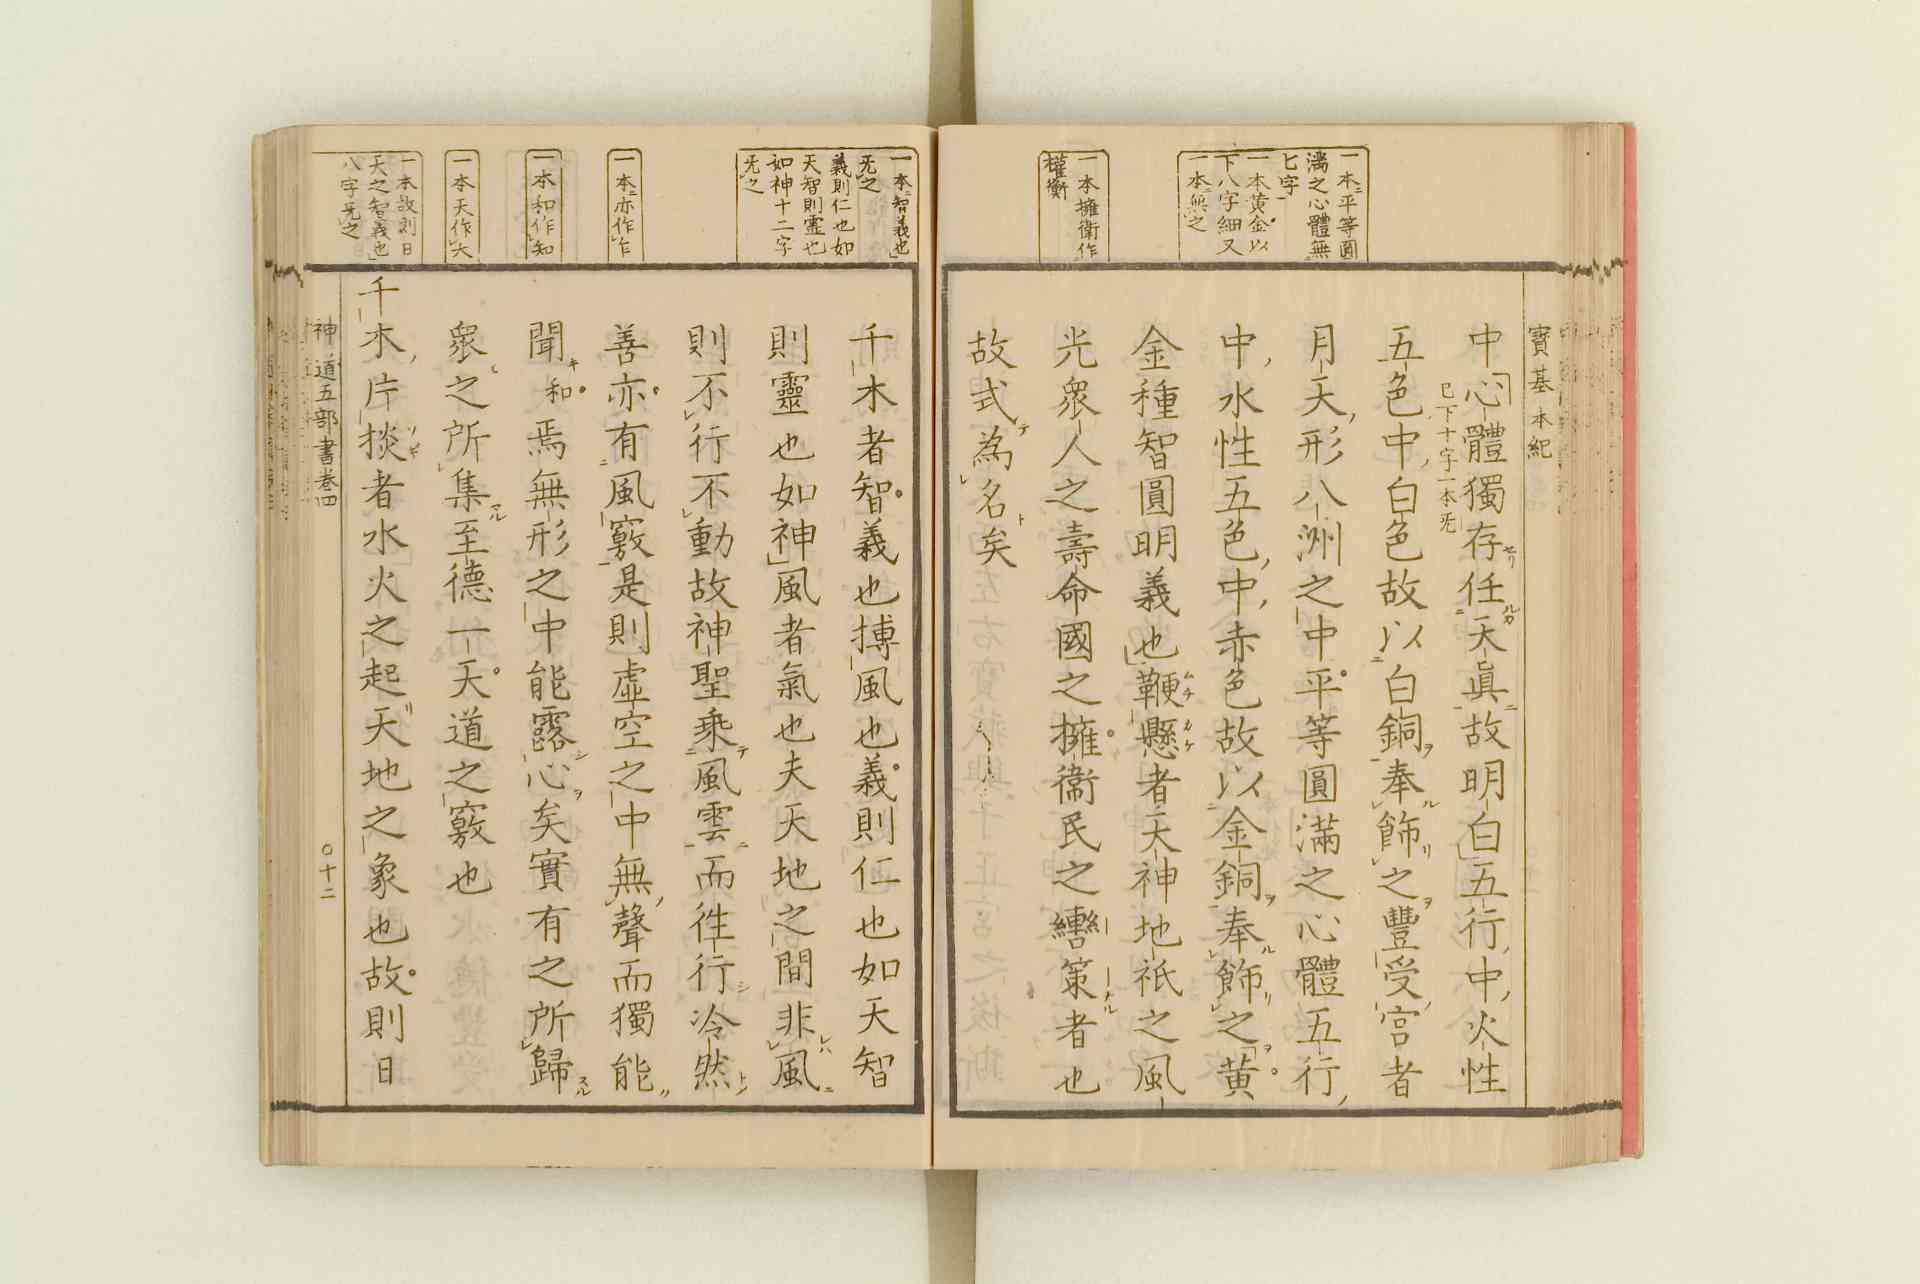 寶基本紀
一本ニ平等圓
滿之心體無
匕字
一本黃金以
下八字細又
一本ニ無之
一本擁衛作
權衡
中心體獨存任天眞故明白五行中火性
已下十字一本旡
五色中白色故以白銅奉飾之豐受宮者
月天形八洲之中平等圓滿之心體五行
中水性五色中赤色故以金銅奉飾之黃
金種智圓明義也鞭懸者天神地祇之風
光衆人之壽命國之擁衞民之轡策者也
故式為名矣
一本ニ智義也
旡之
義則仁也如
天智則靈也
如神十二字
旡之
一本ニ亦作乍
一本和作知
一本天作大
一本故則日
天之智義也
八字旡之
千木者智義也搏風也義則仁也如天智
則靈也如神風者氣也夫天地之間非風
則不行不動故神聖乘風雲而徃行冷然
善亦有風竅是則虛空之中無聲而獨能
聞和焉無形之中能露心矣實有之所歸
衆之所集至德一天道之竅也
千木片掞者水火之起天地之象也故則日
神道五部書卷四
〇十二